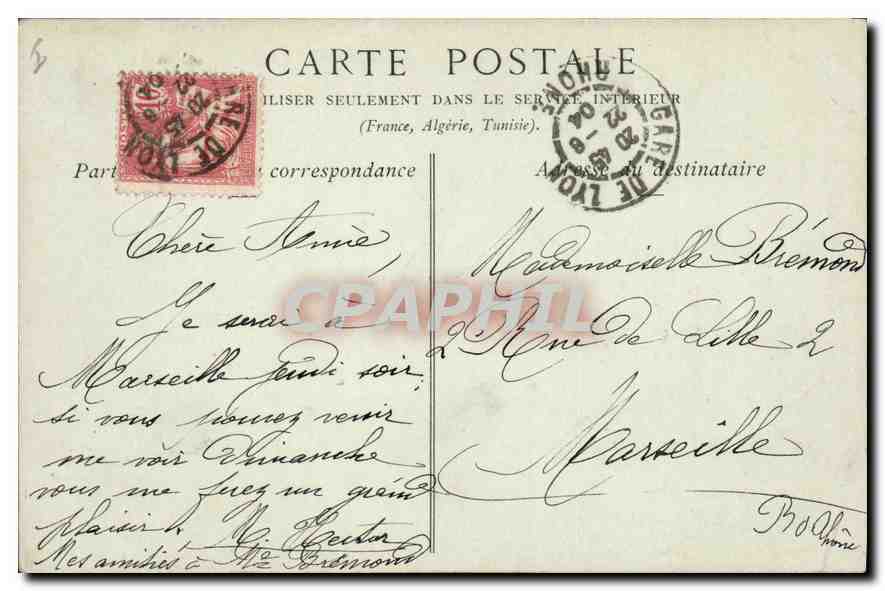 CARTE POSTALE
ILISER SEULEMENT DANS LE SERVICE INTÉRIEUR
(France, Algérie, Tunisie).
Part correspondance
Adresse du destinataire
10
GARE DE LYON RHONE
20 45
22 - 6
04
GARE DE LYON
20 45
22 6
04
CPAPHIL
Chère Amie,
Je serai à
Marseille jeudi soir;
si vous pouvez venir
me voir Dimanche
vous me ferez un grand
plaisir.
Mes amitiés à Me Brémond
Mademoiselle Brémond
2 Rue de Lille 2
Marseille
B d Rhône